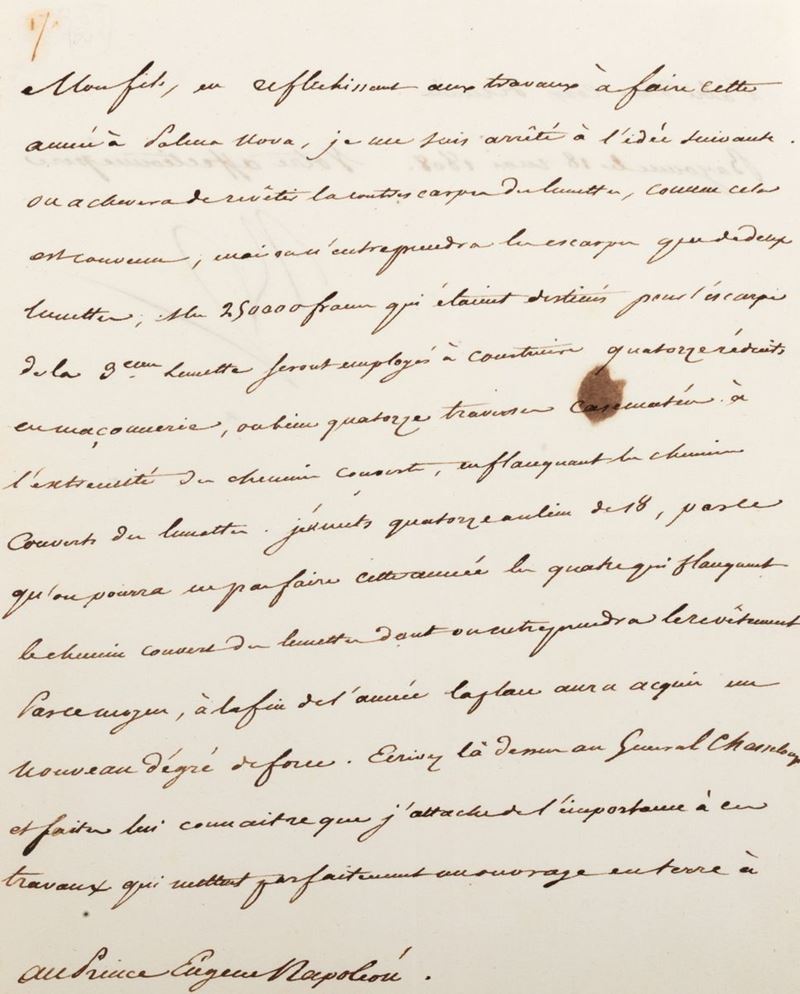 17
Mon fils, en réflechissant aux travaux à faire cette
année à Palma Nova, je me suis arrêté à l'idée suivante.
on achevera de revêtir la contrescarpe des lunettes, comme cela
est convenu, mais on n'entreprendra les escarpes que de deux
lunettes; les 250000 francs qui étaient destinés pour l'escarpe
de la 3eme lunette seront employés à construire quatorze réduits
en maçonnerie, ou bien quatorze traverses casematées à
l'extremité du chemin couvert, en flanquant les chemins
couverts des lunettes. je mets quatorze au lieu de 18, parce
qu'on pourra ne pas faire cette année les quatre qui flanquent
le chemin couvert des lunettes dont on entreprendra le revêtement
Par ce moyen, à la fin de l'année la place aura acquis un
nouveau dégré de force. Ecrivez là dessus au Général Chasseloup
et faites lui connaitre que j'attache de l'importance à ces
travaux qui mettent parfaitement un ouvrage en terre à
au Prince Eugene Napoléon.